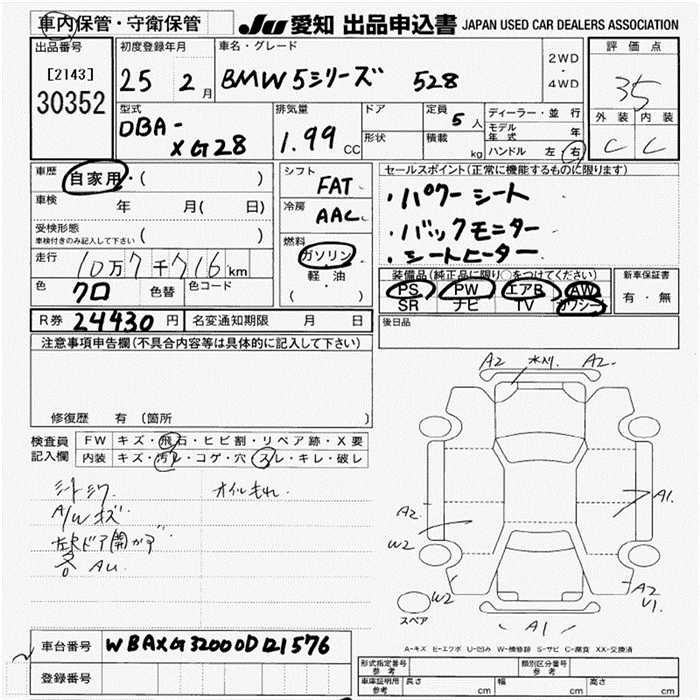 車内保管・守衛保管
JU 愛知 出品申込書 JAPAN USED CAR DEALERS ASSOCIATION
出品番号
[2143]
30352
初度登録年月
25 2 月
車名・グレード
BMW 5シリーズ 528
2WD
・
4WD
評価点
35
外装 内装
C C
型式
DBA-
XG28
排気量
1.99 CC
ドア
形状
定員 5 人
積載 kg
ディーラー・並行
モデル年式 年
ハンドル 左 右
車歴 自家用・( )
車検 年 月( 日)
受検形態 ( )
車検付きのみ記入して下さい
走行 10万7千716km
色 クロ 色替 色コード
R券 24430 円 名変通知期限 月 日
シフト
FAT
冷房
AAC
燃料
ガソリン
軽・油
( )
セールスポイント(正常に機能するものに限ります)
・パワーシート
・バックモニター
・シートヒーター
装備品(純正品に限り○をつけてください)
PS PW エアB AW
SR ナビ TV カワシート
新車保証書
有・無
後日品
注意事項申告欄(不具合内容等は具体的に記入して下さい)
修復歴 有 (箇所 )
検査員記入欄
FW キズ・飛石・ヒビ割・リペア跡・X要
内装 キズ・汚レ・コゲ・穴・スレ・キレ・破レ
シートシワ オイルもれ
A/Wキズ
ドア開か
各 AU
A2 水刈 A2
A2
W2
A1
W2
A2
U1
A1
スペア
A-キズ E-エクボ U-凹み W-補修跡 S-サビ C-腐食 XX-交換済
車台番号 WBAXG32000DD21576
登録番号
形式指定番号
参考
類別区分番号
参考
車庫証明用
参考
長さ cm 幅 cm 高さ cm